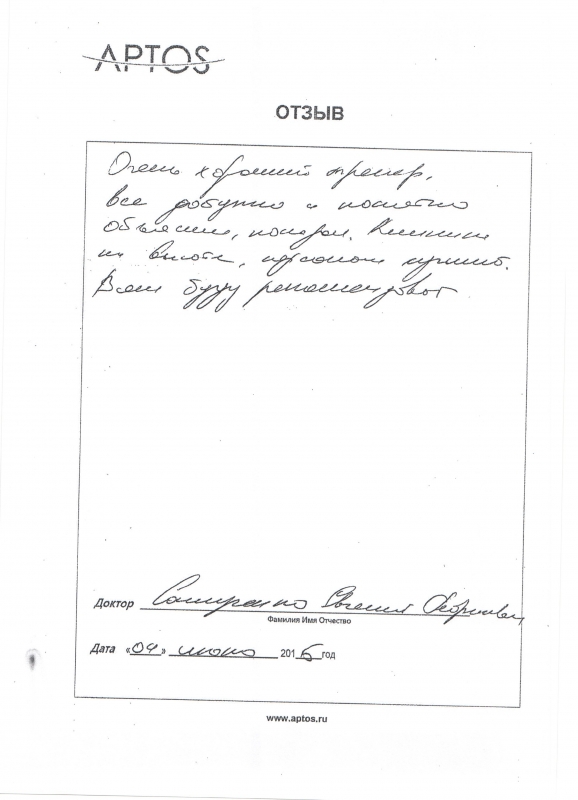 APTOS
ОТЗЫВ
Очень хороший тренер,
все доступно и понятно
объяснил, показал. Клиника
на высоте, персонал лучший.
Всем буду рекомендовать
Доктор Евгений
Фамилия Имя Отчество
Дата «04» июня 2016 год
www.aptos.ru